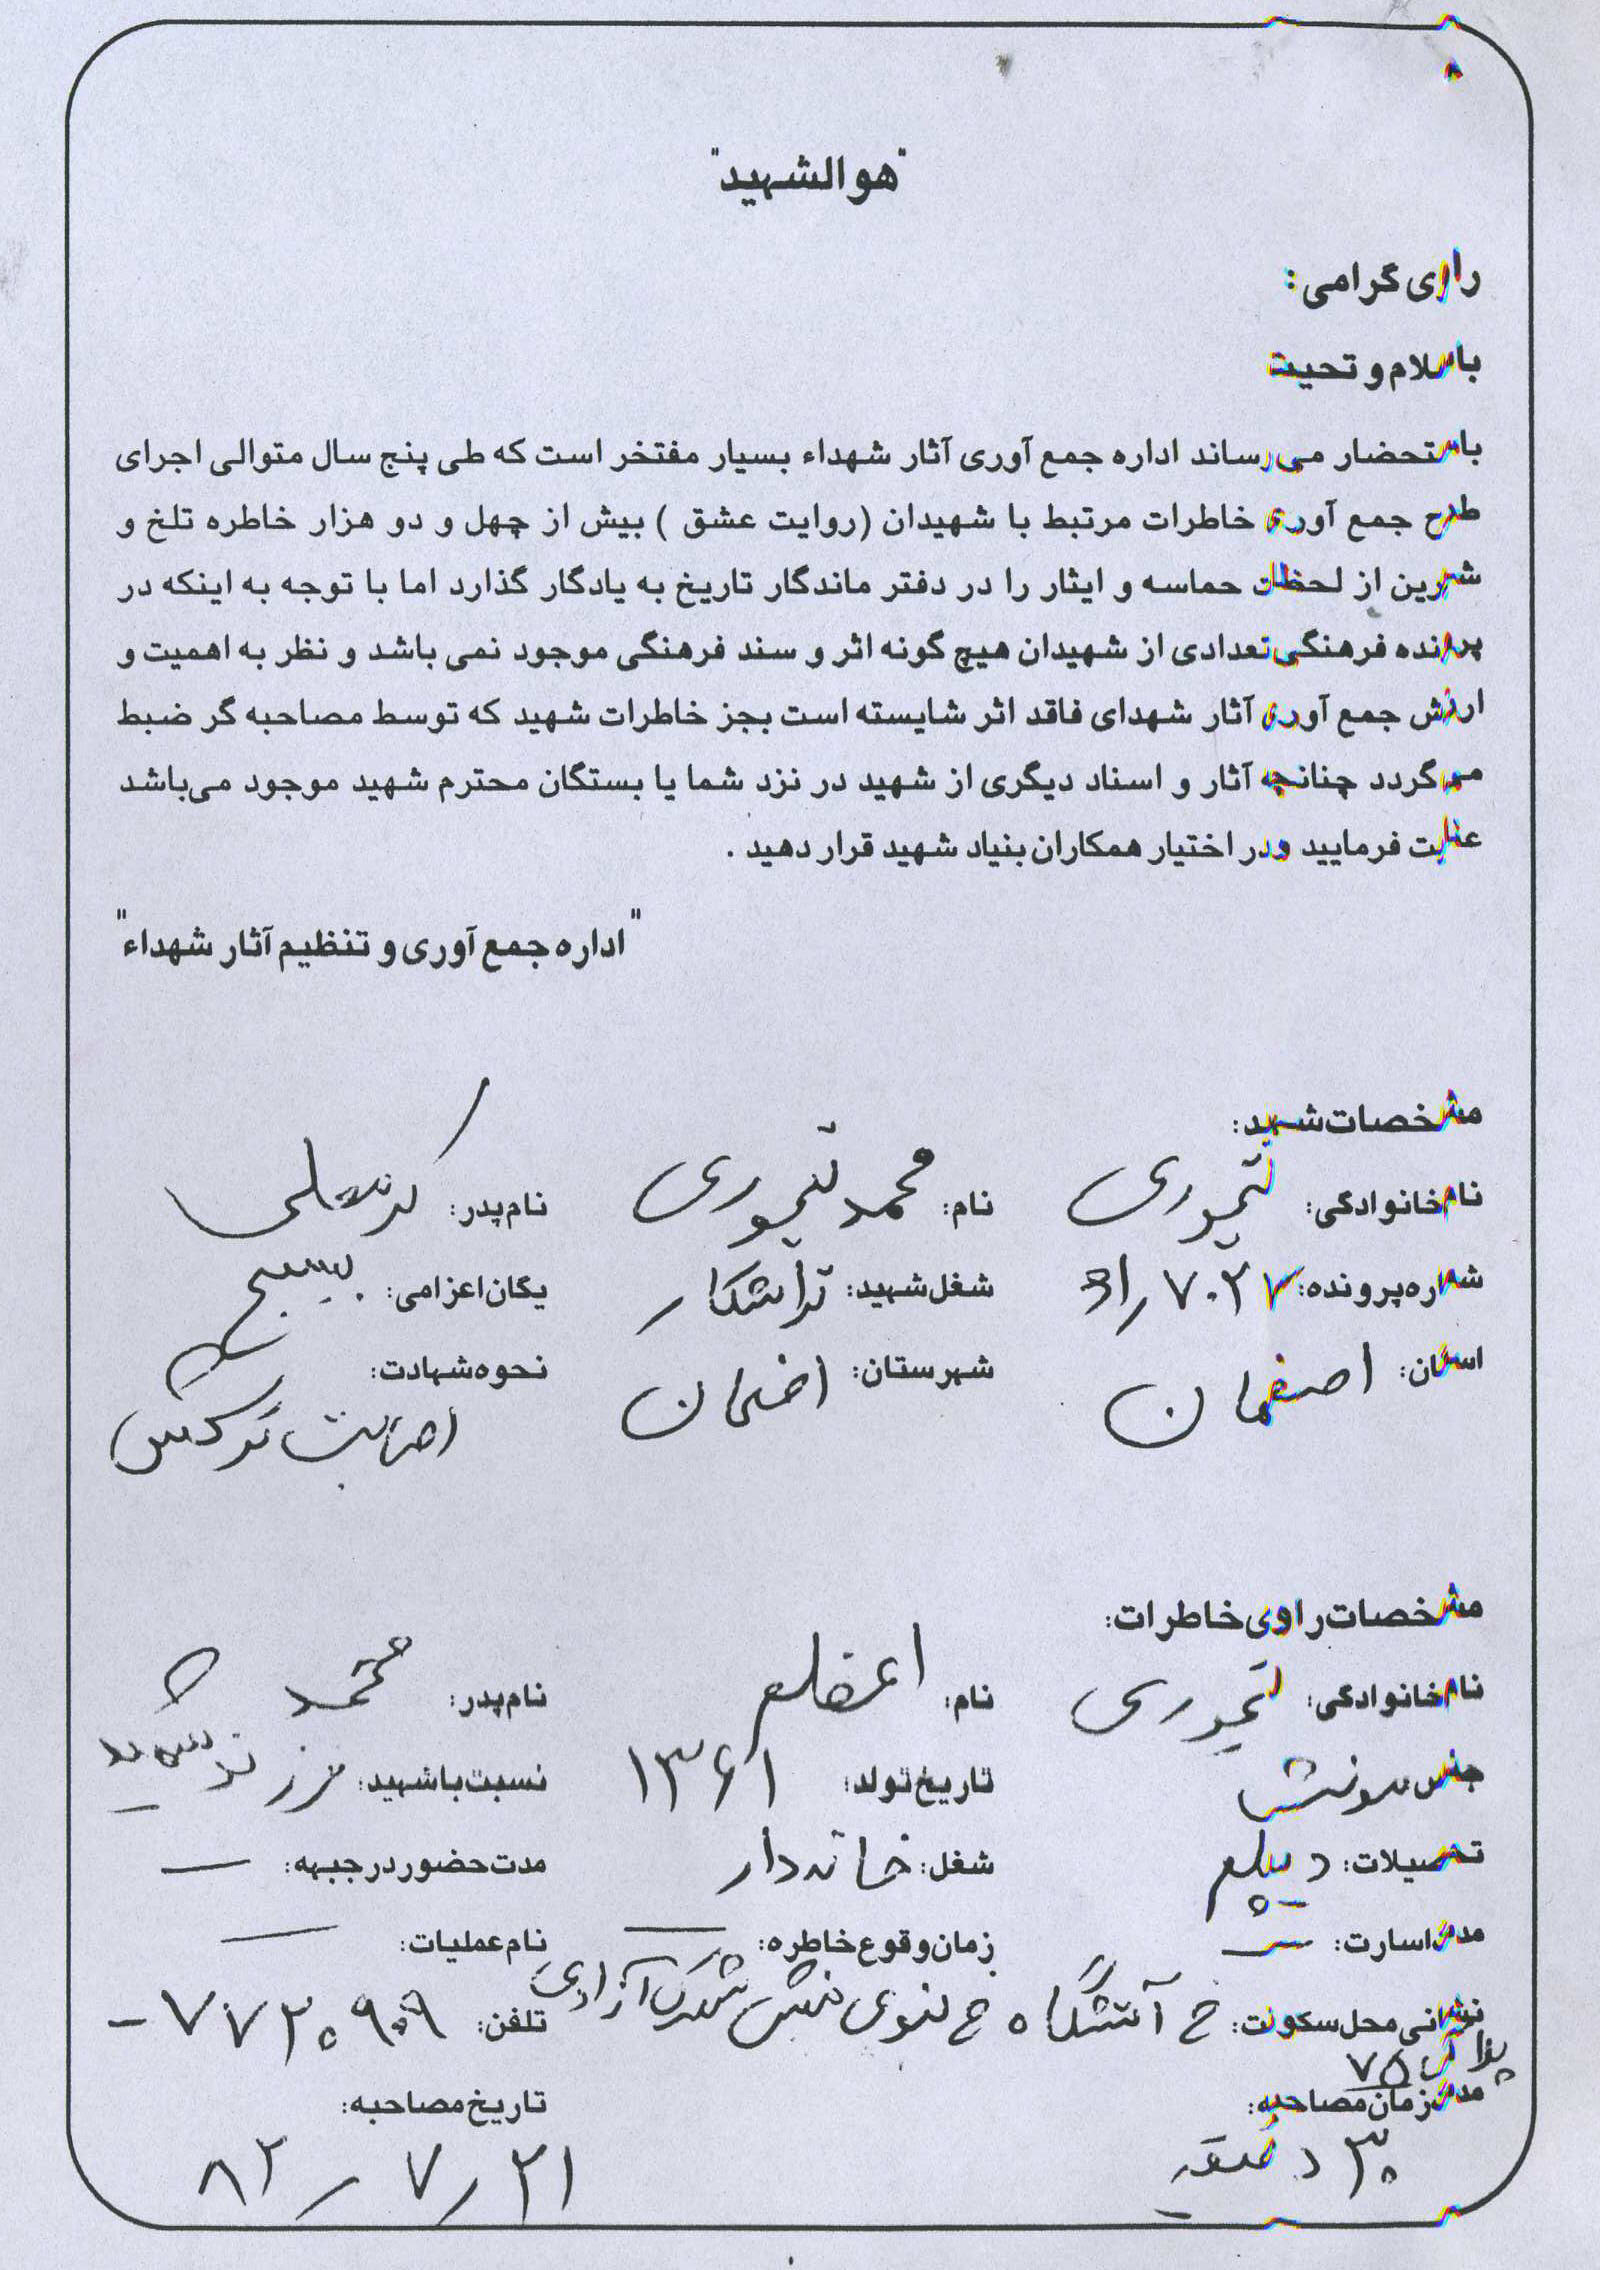 "هوالشهید"
راوی گرامی:
باسلام و تحیت
باستحضار می رساند اداره جمع آوری آثار شهداء بسیار مفتخر است که طی پنج سال متوالی اجرای
طرح جمع آوری خاطرات مرتبط با شهیدان (روایت عشق ) بیش از چهل و دو هزار خاطره تلخ و
شیرین از لحظات حماسه و ایثار را در دفتر ماندگار تاریخ به یادگار گذارد اما با توجه به اینکه در
پرونده فرهنگی تعدادی از شهیدان هیچ گونه اثر و سند فرهنگی موجود نمی باشد و نظر به اهمیت و
ارزش جمع آوری آثار شهدای فاقد اثر شایسته است بجز خاطرات شهید که توسط مصاحبه گر ضبط
می گردد چنانچه آثار و اسناد دیگری از شهید در نزد شما یا بستگان محترم شهید موجود می‌باشد
عنایت فرمایید و در اختیار همکاران بنیاد شهید قرار دهید .
"اداره جمع آوری و تنظیم آثار شهداء"
مشخصات شهید:
نام خانوادگی: تیموری نام: محمد تیموری نام پدر: کرمعلی
شماره پرونده: ۷۰۲۷ شغل شهید: تراشکار یگان اعزامی: بسیج
استان: اصفهان شهرستان: اصفهان نحوه شهادت:
اصابت ترکش
مشخصات راوی خاطرات:
نام خانوادگی: تیموری نام: اعظم نام پدر: محمد
جنس مونث تاریخ تولد: ۱۳۶۱ نسبت با شهید: فرزند شهید
تحصیلات: دیپلم شغل: خانه دار مدت حضور در جبهه: —
مدت اسارت: — زمان وقوع خاطره: — نام عملیات: —
نشانی محل سکونت: خ آتشگاه خ نبوی نبش شهرک آزادی تلفن: ۷۷۲۰۹۰۹ -
پلاک ۷۵
مدت زمان مصاحبه: تاریخ مصاحبه:
۳۰ دقیقه ۸۲/۷/۲۱